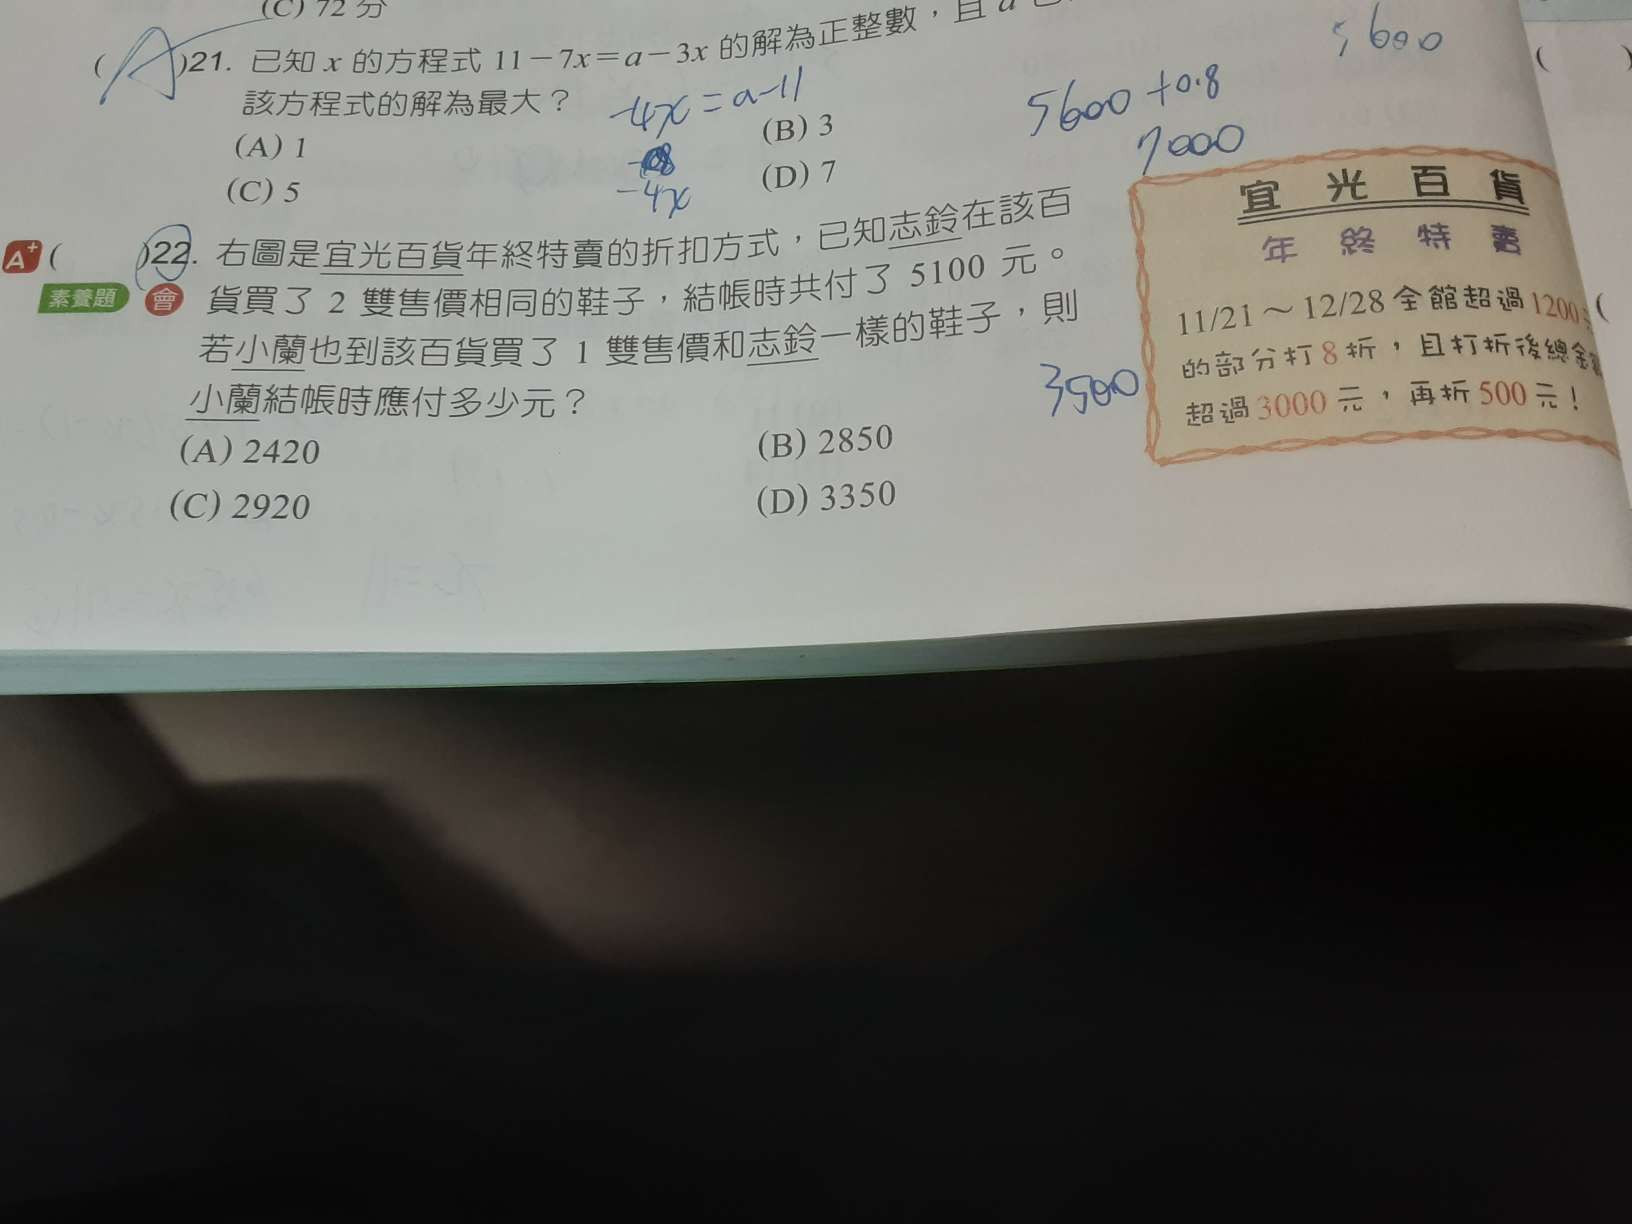 (C) 72 分
( A )21. 已知 x 的方程式 11－7x＝a－3x 的解為正整數，且 a
該方程式的解為最大？
-4x = a-11
(A) 1
(B) 3
(C) 5
(D) 7
-8
-4x
5600
5600 ÷0.8
7000
A+ ( )22. 右圖是宜光百貨年終特賣的折扣方式，已知志鈴在該百
素養題 會 貨買了 2 雙售價相同的鞋子，結帳時共付了 5100 元。
若小蘭也到該百貨買了 1 雙售價和志鈴一樣的鞋子，則
小蘭結帳時應付多少元？
(A) 2420
(B) 2850
(C) 2920
(D) 3350
3500
宜光百貨
年終特賣
11/21～12/28 全館超過 1200
的部分打 8 折，且打折後總金
超過 3000 元，再折 500 元！
(
( )